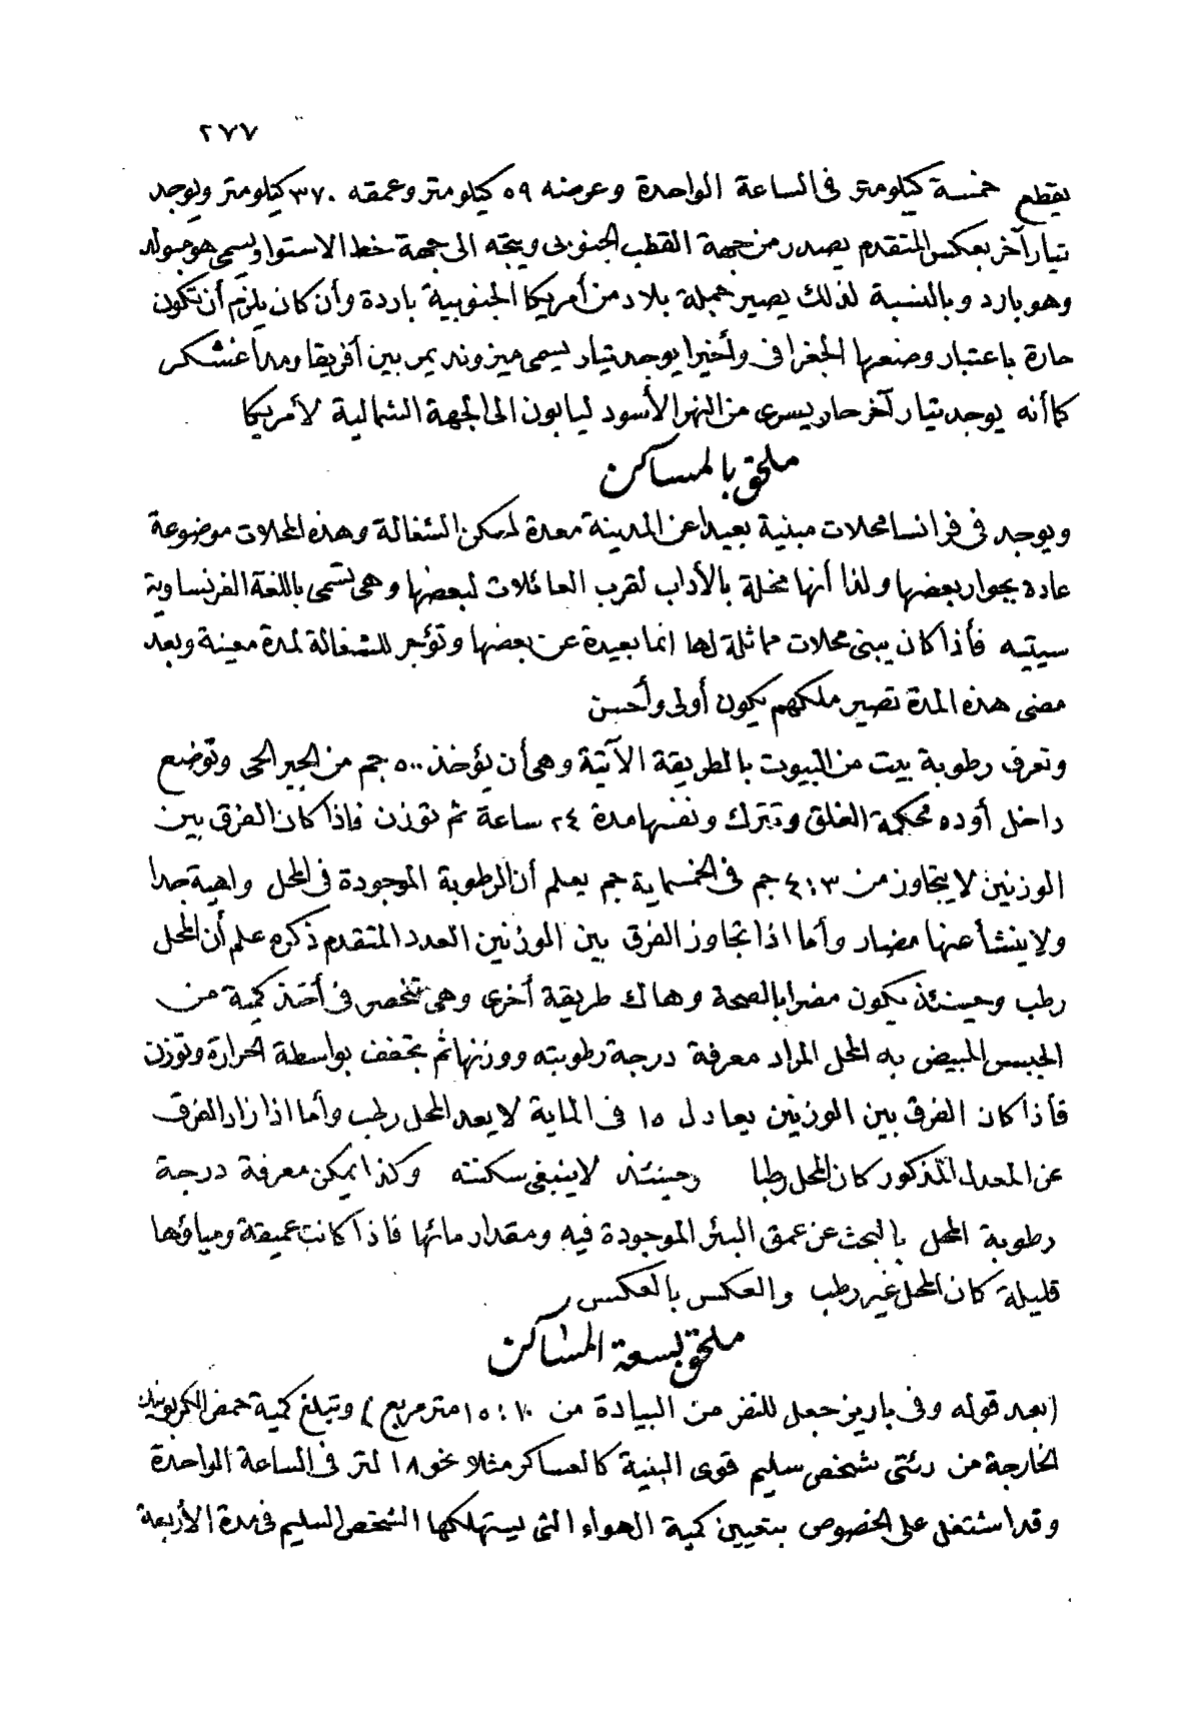 ٢٧٧
يقطع خمسة كيلومتر فى الساعة الواحدة وعرضه ٥٩ كيلومتر وعمقه ٣٧٠ كيلومتر ويوجد
تيار آخر بعكس المتقدم يصدر من جهة القطب الجنوبى ويتجه الى جهة خط الاستوا ويسمى هومبولد
وهو بارد وبالنسبة لذلك يصير جملة بلاد من أمريكا الجنوبية باردة وأن كان يلزم أن تكون
حارة باعتبار وضعها الجغرافى وأخيرا يوجد تيار يسمى ميزونه يمر بين أفريقا ومدا غشكر
كما أنه يوجد تيار آخر حار يسرى من النهر الأسود ليابون الى الجهة الشمالية لأمريكا
ملحق بالمساكن
ويوجد فى فرانسا محلات مبنية بعيدا عن المدينة معدة لمسكن الشغالة وهذه المحلات موضوعة
عاده بجوار بعضها ولذا أنها مخلة بالأداب لقرب العائلات لبعضها وهى تسمى باللغة الفرنساوية
سيتيه فأذا كان يبنى محلات مماثلة لها انما بعيدة عن بعضها وتؤجر للشغالة لمدة معينة وبعد
مضى هذه المدة تصير ملكهم يكون أولى وأحسن
وتعرف رطوبة بيت من البيوت بالطريقة الآتية وهى أن يؤخذ ٥٠٠ جم من الجير الحى وتوضع
داخل أوده محكمة الغلق وتترك ونفسها مدة ٢٤ ساعة ثم توزن فاذا كان الفرق بين
الوزنين لا يتجاوز من ٣ : ٤ جم فى الخمسماية جم يعلم أن الرطوبة الموجودة فى المحل واهية جدا
ولا ينشأ عنها مضار وأما اذا تجاوز الفرق بين الوزنين العدد المتقدم ذكره علم أن المحل
رطب وحينئذ يكون مضرا بالصحة وهاك طريقة أخرى وهى تنحصر فى أخذ كمية من
الجبس المبيض به المحل المراد معرفة درجة رطوبته ووزنها ثم تجفف بواسطة الحرارة وتوزن
فأذا كان الفرق بين الوزنين يعادل ١٥ فى الماية لا يعد المحل رطب وأما اذا زاد الفرق
عن المعدل المذكور كان المحل رطبا وحينئذ لا ينبغى سكنته وكذا يمكن معرفة درجة
رطوبة المحل بالبحث عن عمق البئر الموجودة فيه ومقدار مائها فاذا كانت عميقة ومياؤها
قليلة كان المحل غير رطب والعكس بالعكس
ملحق بسعة المساكن
(بعد قوله وفى باريز جعل للنفر من البيادة من ١٠ : ١٥ متر مربع) وتبلغ كمية حمض الكربونيك
الخارجة من رئتى شخص سليم قوى البنية كالعساكر مثلا نحو ١٨ لتر فى الساعة الواحدة
وقد اشتغل على الخصوص بتعيين كمية الهواء التى يستهلكها الشخص السليم فى مدة الأربعة